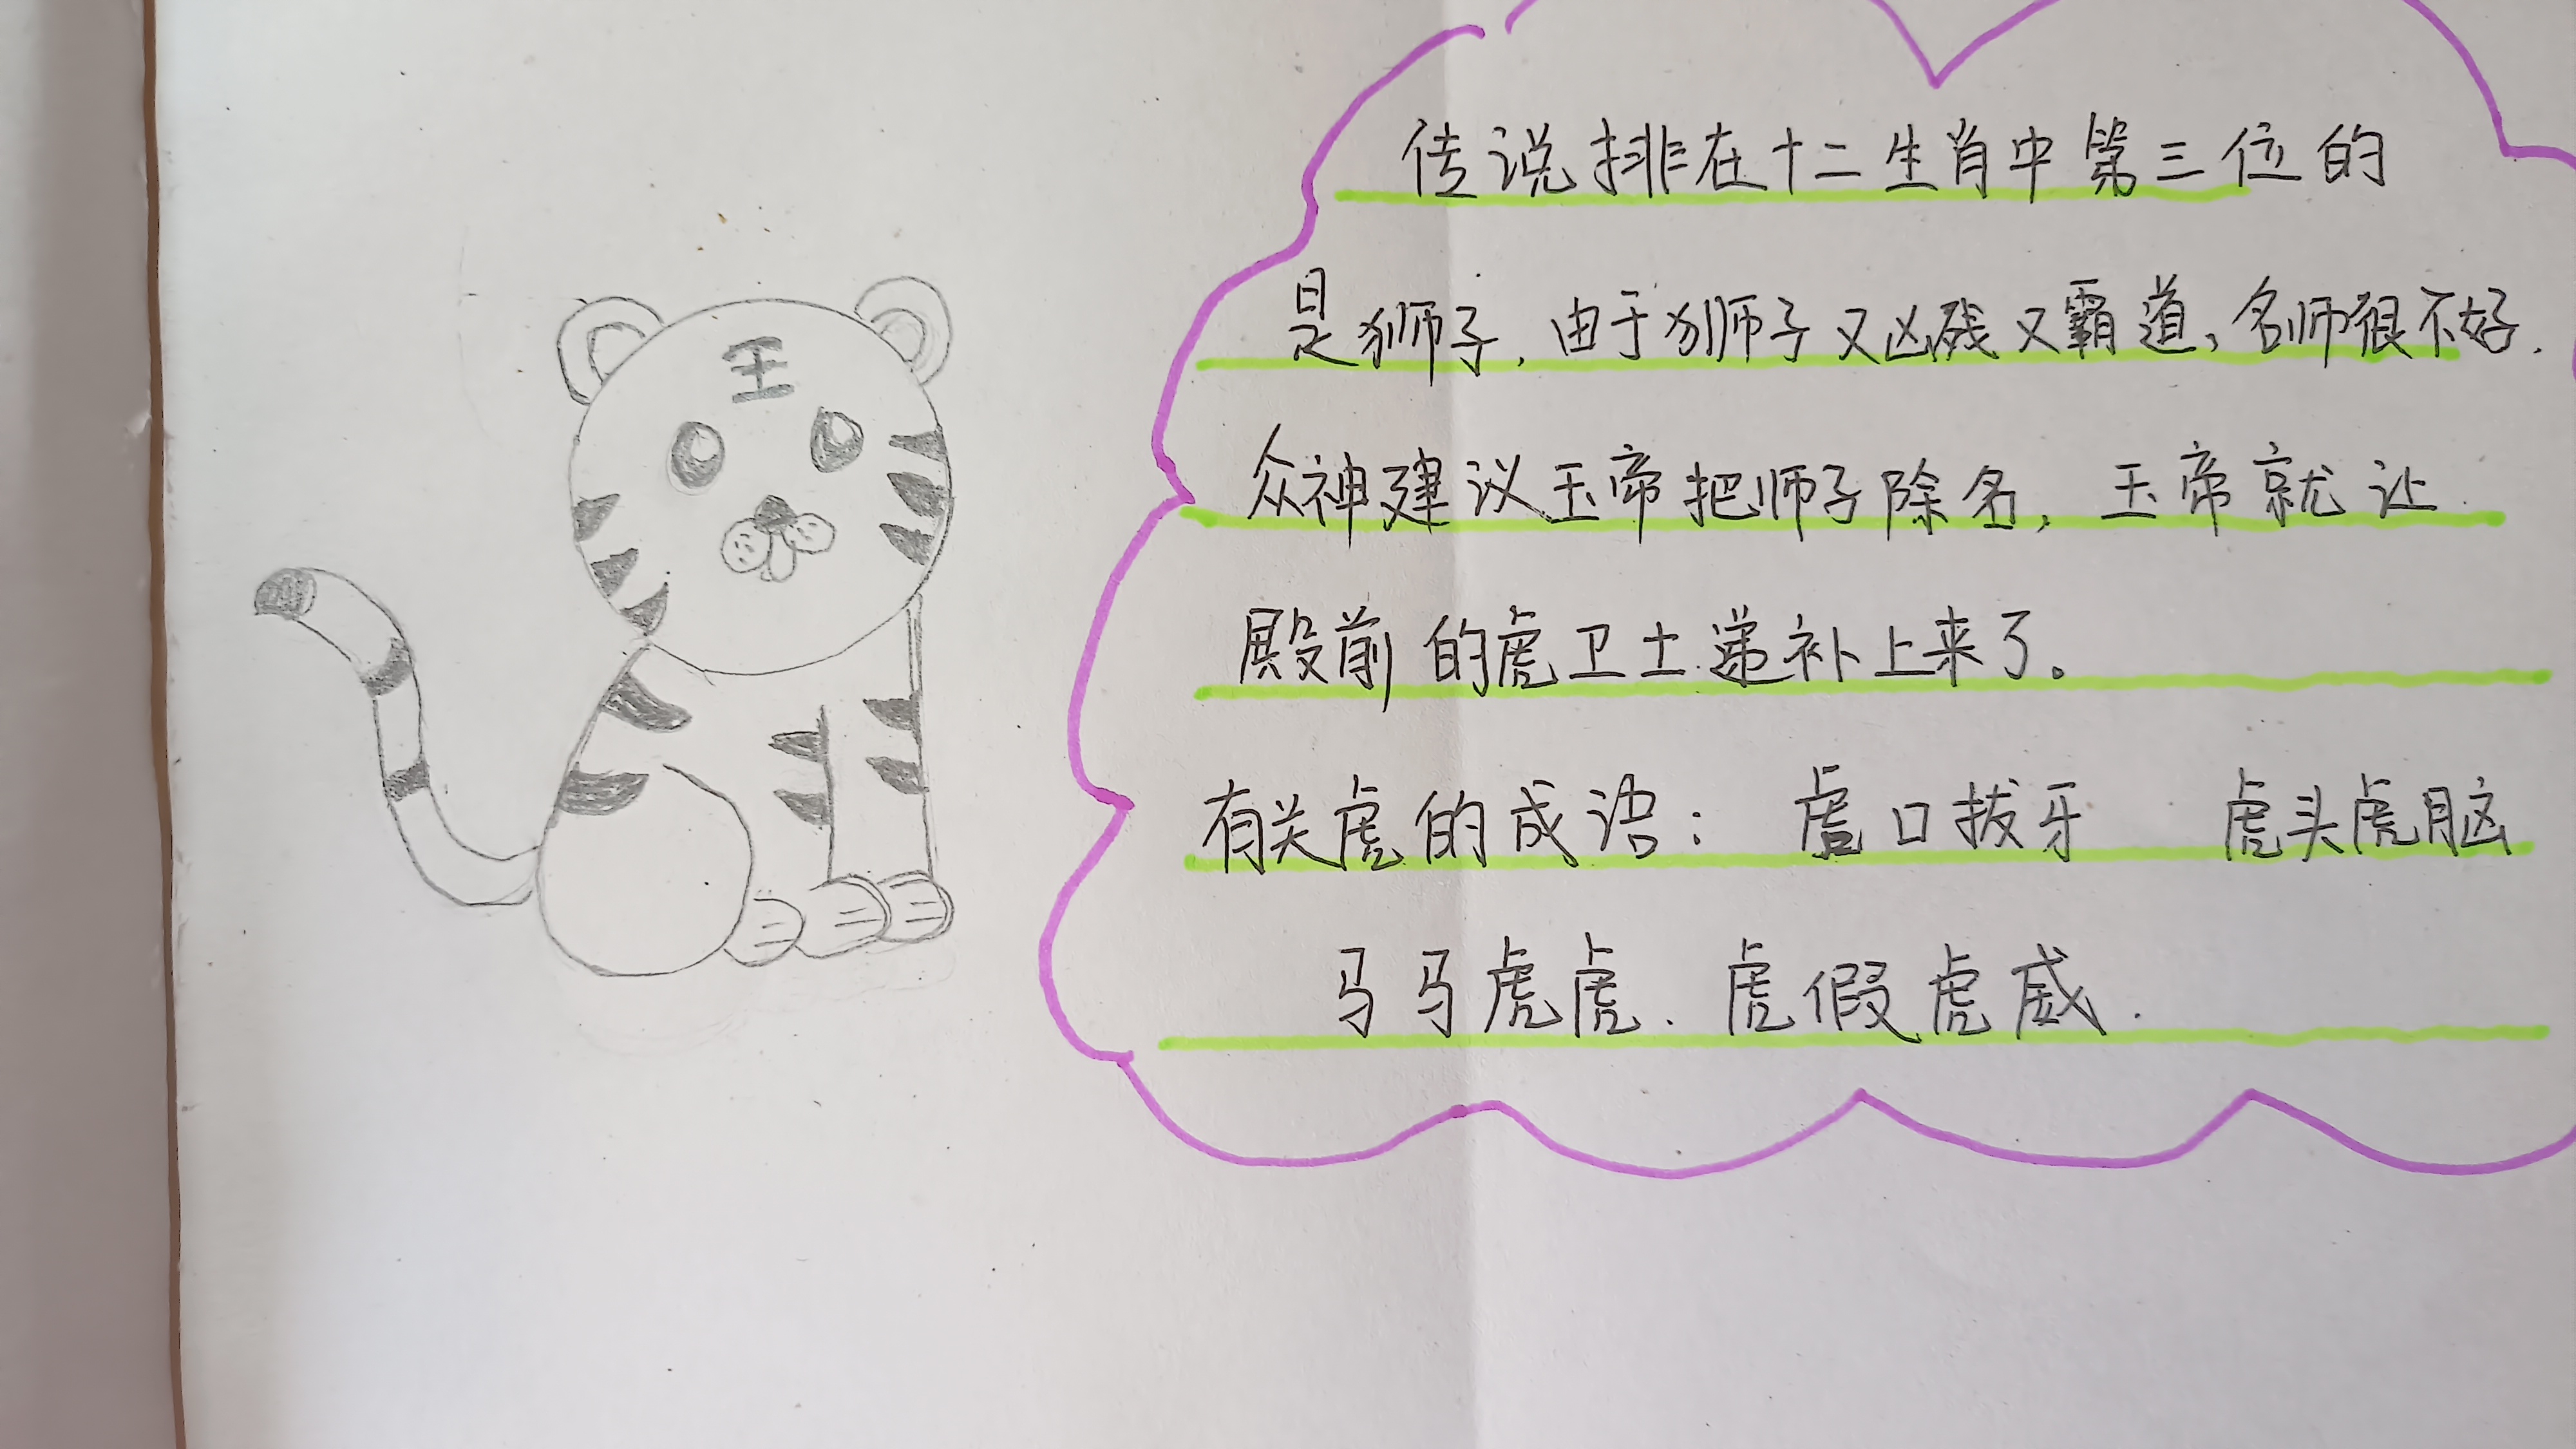 王
传说排在十二生肖中第三位的
是狮子,由于狮子又凶残又霸道,名师很不好.
众神建议玉帝把师子除名,玉帝就让
殿前的虎卫士递补上来了。
有关虎的成语: 虎口拔牙 虎头虎脑
马马虎虎. 虎假虎威.